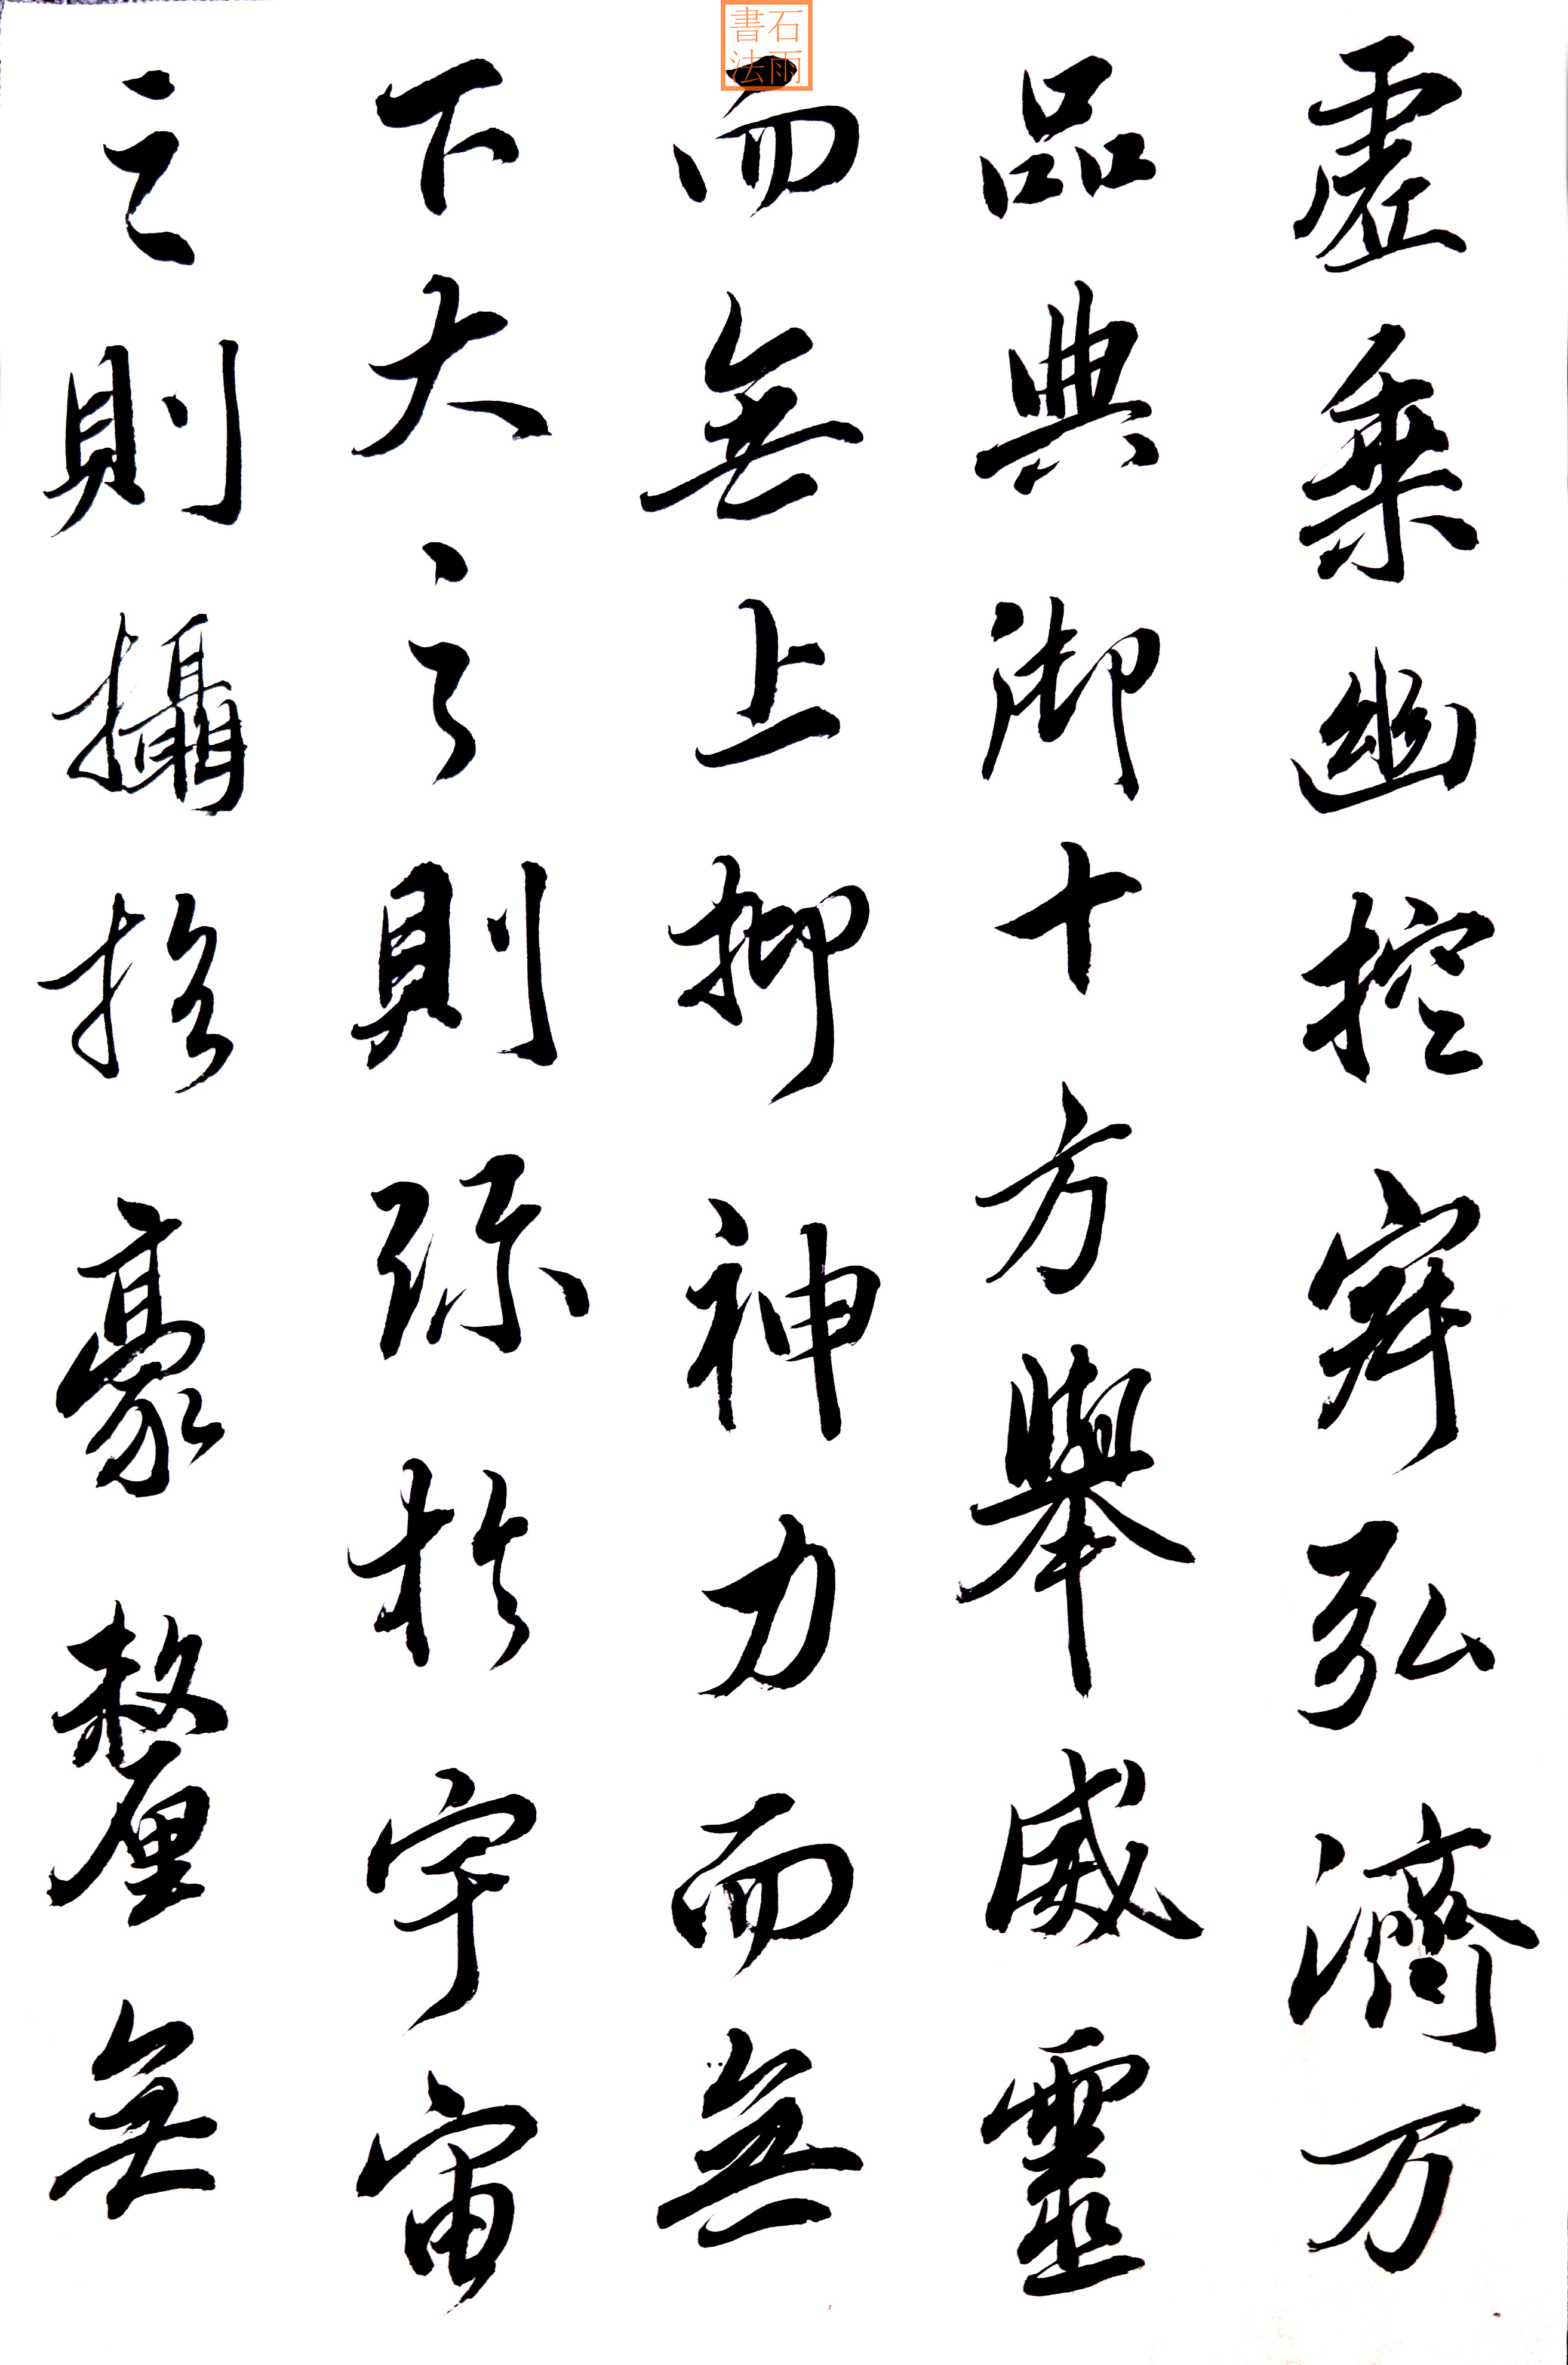 虛乘幽控寂弘濟万
品典御十方舉威靈
而無上抑神力而無
下大之則弥於宇宙
之則攝於豪釐無
石雨書法